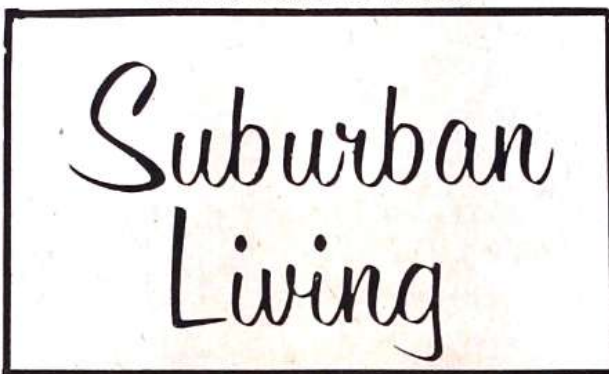 Suburban
Living